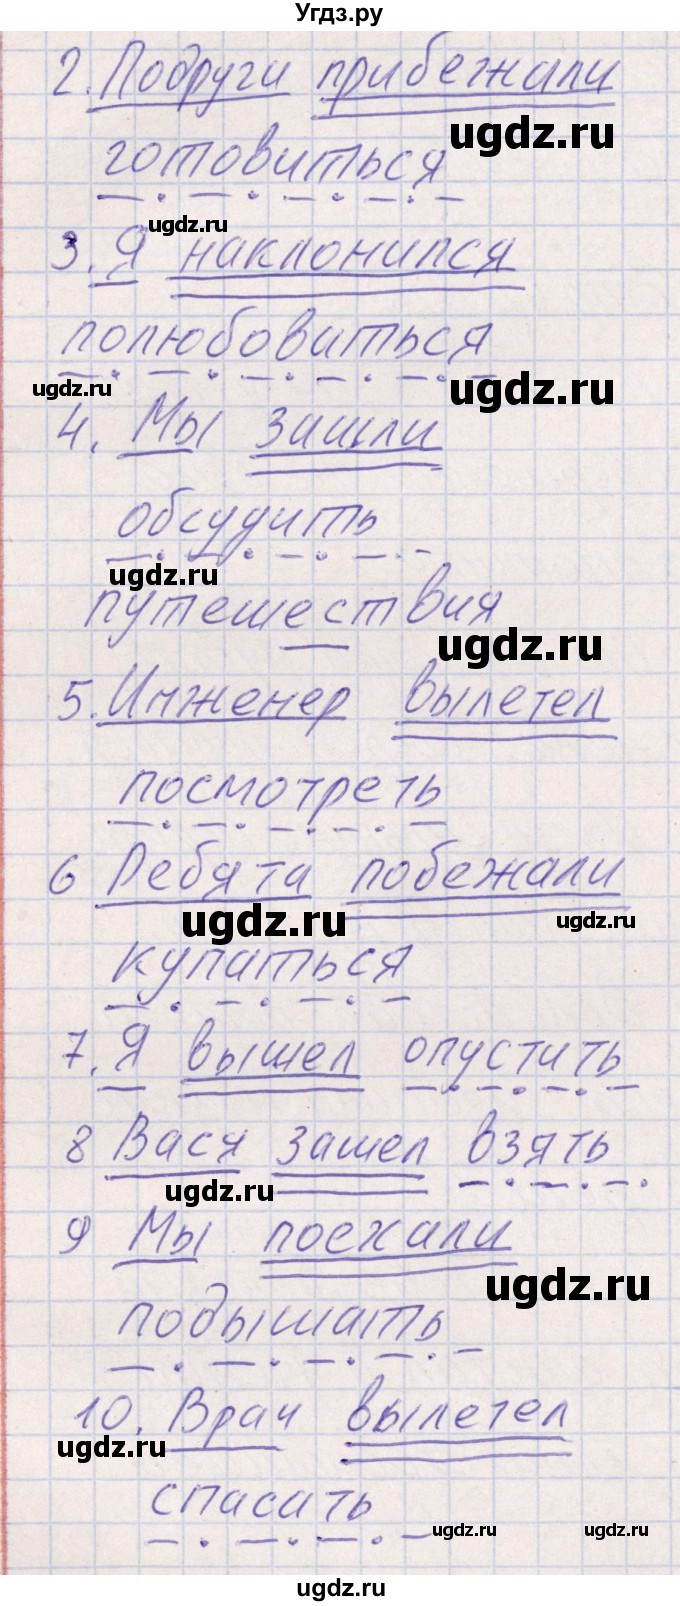 Угдз.ру
2. Подруги прибежали
ugdz.ru
готовиться
ugdz.ru
3. Я наклонился
полюбоваться
ugdz.ru
ugdz.ru
4. Мы зашли
обсудить
ugdz.ru
путешествия
ugdz.ru
5. Инженер вылетел
посмотреть
6 Ребята побежали
ugdz.ru
ugdz.ru
купаться
7. Я вышел опустить
8 Вася зашел взять
ugdz.ru
9 Мы поехали
ugdz.ru
подышать
10. Врач вылетел
ugdz.ru
спасать
ugdz.ru
ugdz.ru
ugdz.ru